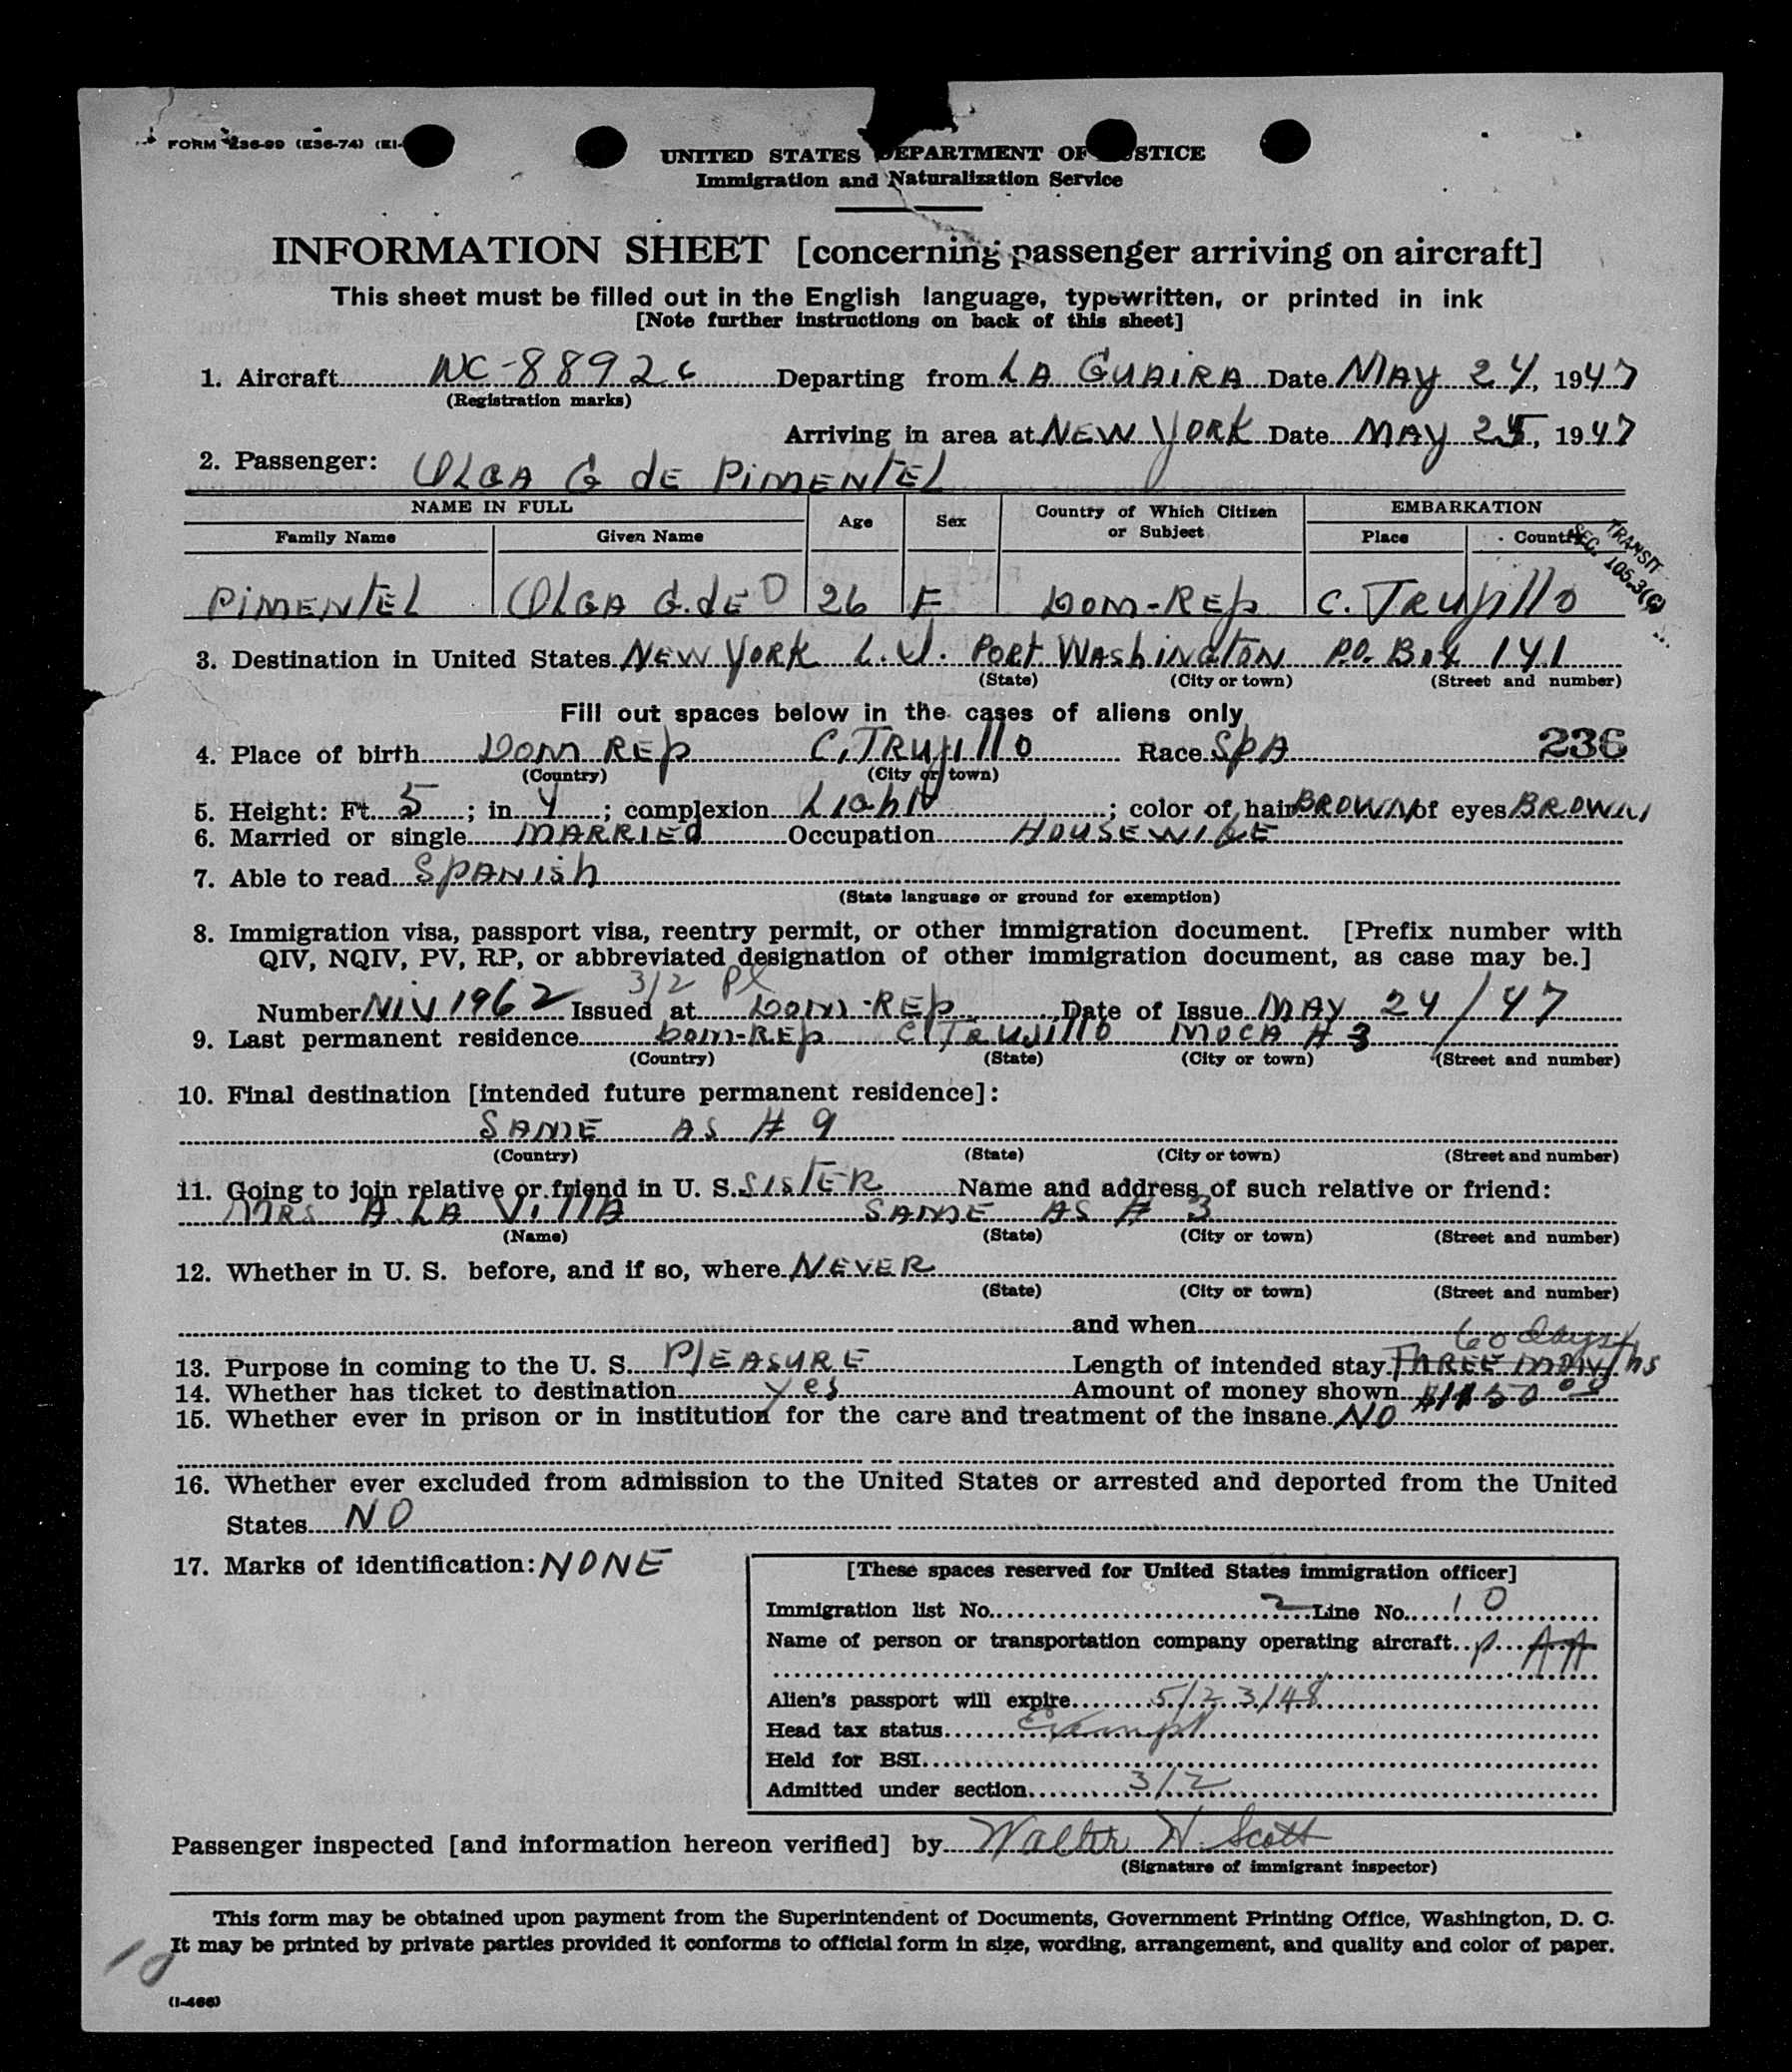 FORM 236-99 (E36-74) (EI-
UNITED STATES DEPARTMENT OF STICE
Immigration and Naturalization Service
INFORMATION SHEET [concerning passenger arriving on aircraft]
This sheet must be filled out in the English language, typewritten, or printed in ink
[Note further instructions on back of this sheet]
1. Aircraft NC-88926 Departing from LA GUAIRA Date MAY 24, 1947
(Registration marks)
Arriving in area at NEW YORK Date MAY 25, 1947
2. Passenger: OLGA G dE PiMENTEL
NAME IN FULL Age Sex Country of Which Citizen or Subject EMBARKATION
Family Name Given Name Place Country
TRANSIT
SEC. 105.3(C)
PiMENTEL OLGA G. dE 26 F DOM-REp C. TRUjillo
3. Destination in United States NEW YORK L.I. PORT WAShiNGTON P.O. Box 141
(State) (City or town) (Street and number)
Fill out spaces below in the cases of aliens only
4. Place of birth DOM REp C. TRUjillo Race SpA 236
(Country) (City or town)
5. Height: Ft. 5; in 4; complexion Light; color of hair BROWN of eyes BROWN
6. Married or single MARRIEd Occupation HOUSEWIFE
7. Able to read SPANISh
(State language or ground for exemption)
8. Immigration visa, passport visa, reentry permit, or other immigration document. [Prefix number with
QIV, NQIV, PV, RP, or abbreviated designation of other immigration document, as case may be.]
3/2 Pl
Number NIV 1962 Issued at DOM-REp Date of Issue MAY 24/47
9. Last permanent residence DOM-REp C. TRUjillo MOCA # 3
(Country) (State) (City or town) (Street and number)
10. Final destination [intended future permanent residence]:
SAME AS # 9
(Country) (State) (City or town) (Street and number)
11. Going to join relative or friend in U. S. SISTER Name and address of such relative or friend:
MRS A. LA VillA SAME AS # 3
(Name) (State) (City or town) (Street and number)
12. Whether in U. S. before, and if so, where NEVER
(State) (City or town) (Street and number)
and when
60 days
13. Purpose in coming to the U. S. PlEASURE Length of intended stay ThREE MONThs
14. Whether has ticket to destination yes Amount of money shown $150 00
15. Whether ever in prison or in institution for the care and treatment of the insane NO
16. Whether ever excluded from admission to the United States or arrested and deported from the United
States NO
17. Marks of identification: NONE
[These spaces reserved for United States immigration officer]
Immigration list No. 2 Line No. 10
Name of person or transportation company operating aircraft P AA
Alien's passport will expire 5/23/48
Head tax status Exempt
Held for BSI
Admitted under section 3/2
Passenger inspected [and information hereon verified] by Walter W. Scott
(Signature of immigrant inspector)
This form may be obtained upon payment from the Superintendent of Documents, Government Printing Office, Washington, D. C.
It may be printed by private parties provided it conforms to official form in size, wording, arrangement, and quality and color of paper.
10
(I-466)